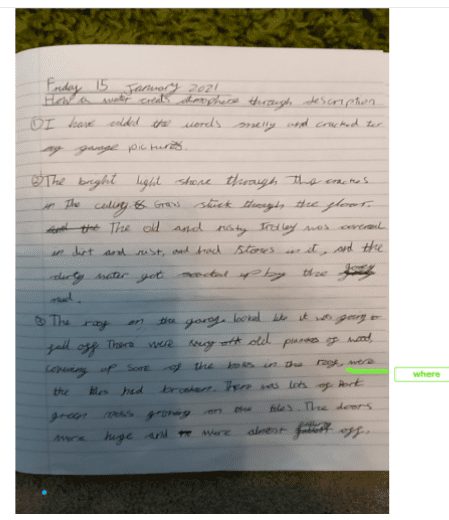 Friday 15 January 2021
How a writer creats atmosphere through description
① I have added the words smelly and cracked for
my garage pictures.
② The bright light shone through the cracks
in the ceiling. Grass stuck through the floor.
The old and rusty Trolley was covered
in dirt and rust, and had stones in it, and the
dirty water got soacked up by the
rual.
③ The roof on the garage looked like it was going to
fall off. There were very old pieces of wood,
covering up some of the holes in the roof, were
the tiles had brocken. There was lots of dark
green moss growing on the tiles. The doors
were huge and were almost falling off.
where